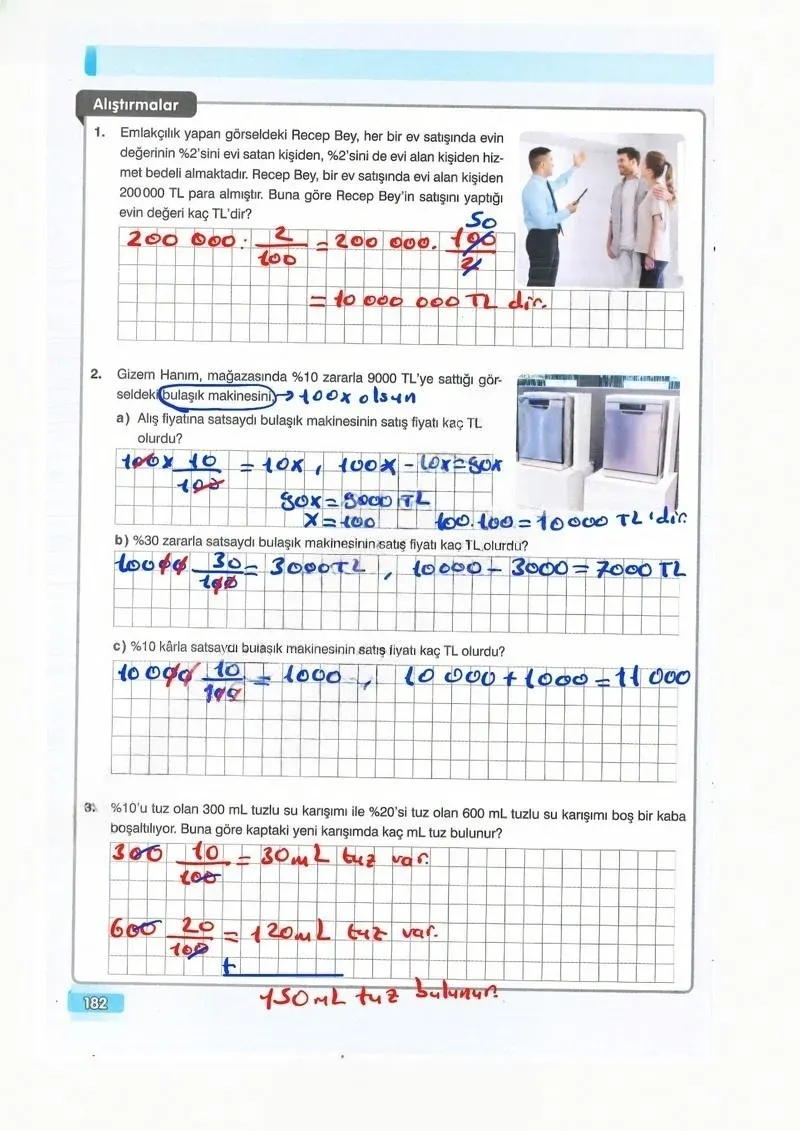 Alıştırmalar
1. Emlakçılık yapan görseldeki Recep Bey, her bir ev satışında evin
değerinin %2'sini evi satan kişiden, %2'sini de evi alan kişiden hiz-
met bedeli almaktadır. Recep Bey, bir ev satışında evi alan kişiden
200 000 TL para almıştır. Buna göre Recep Bey'in satışını yaptığı
evin değeri kaç TL'dir?
50
200 000 : 2/100 = 200 000. 100/2
= 10 000 000 TL dir.
2. Gizem Hanım, mağazasında %10 zararla 9000 TL'ye sattığı gör-
seldeki bulaşık makinesini, → 100x olsun
a) Alış fiyatına satsaydı bulaşık makinesinin satış fiyatı kaç TL
olurdu?
100x 10/100 = 10x, 100x - 10x = 90x
90x = 9000 TL
x = 100 100.100 = 10000 TL'dir.
b) %30 zararla satsaydı bulaşık makinesinin satış fiyatı kaç TL olurdu?
10000 30/100 = 3000TL, 10000 - 3000 = 7000 TL
c) %10 kârla satsaydı bulaşık makinesinin satış fiyatı kaç TL olurdu?
10 000 10/100 = 1000, 10 000 + 1000 = 11 000
3. %10'u tuz olan 300 mL tuzlu su karışımı ile %20'si tuz olan 600 mL tuzlu su karışımı boş bir kaba
boşaltılıyor. Buna göre kaptaki yeni karışımda kaç mL tuz bulunur?
300 10/100 = 30mL tuz var.
600 20/100 = 120mL tuz var.
+
150mL tuz bulunur.
182